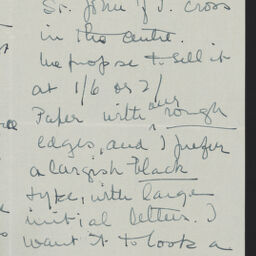 St. John of t. Cross
in the centre.
We propose to sell it
at 1/6 or 2/
Paper with our rough
edges, and I prefer
a largish black
type, with large
initial letters. I
want it to look a